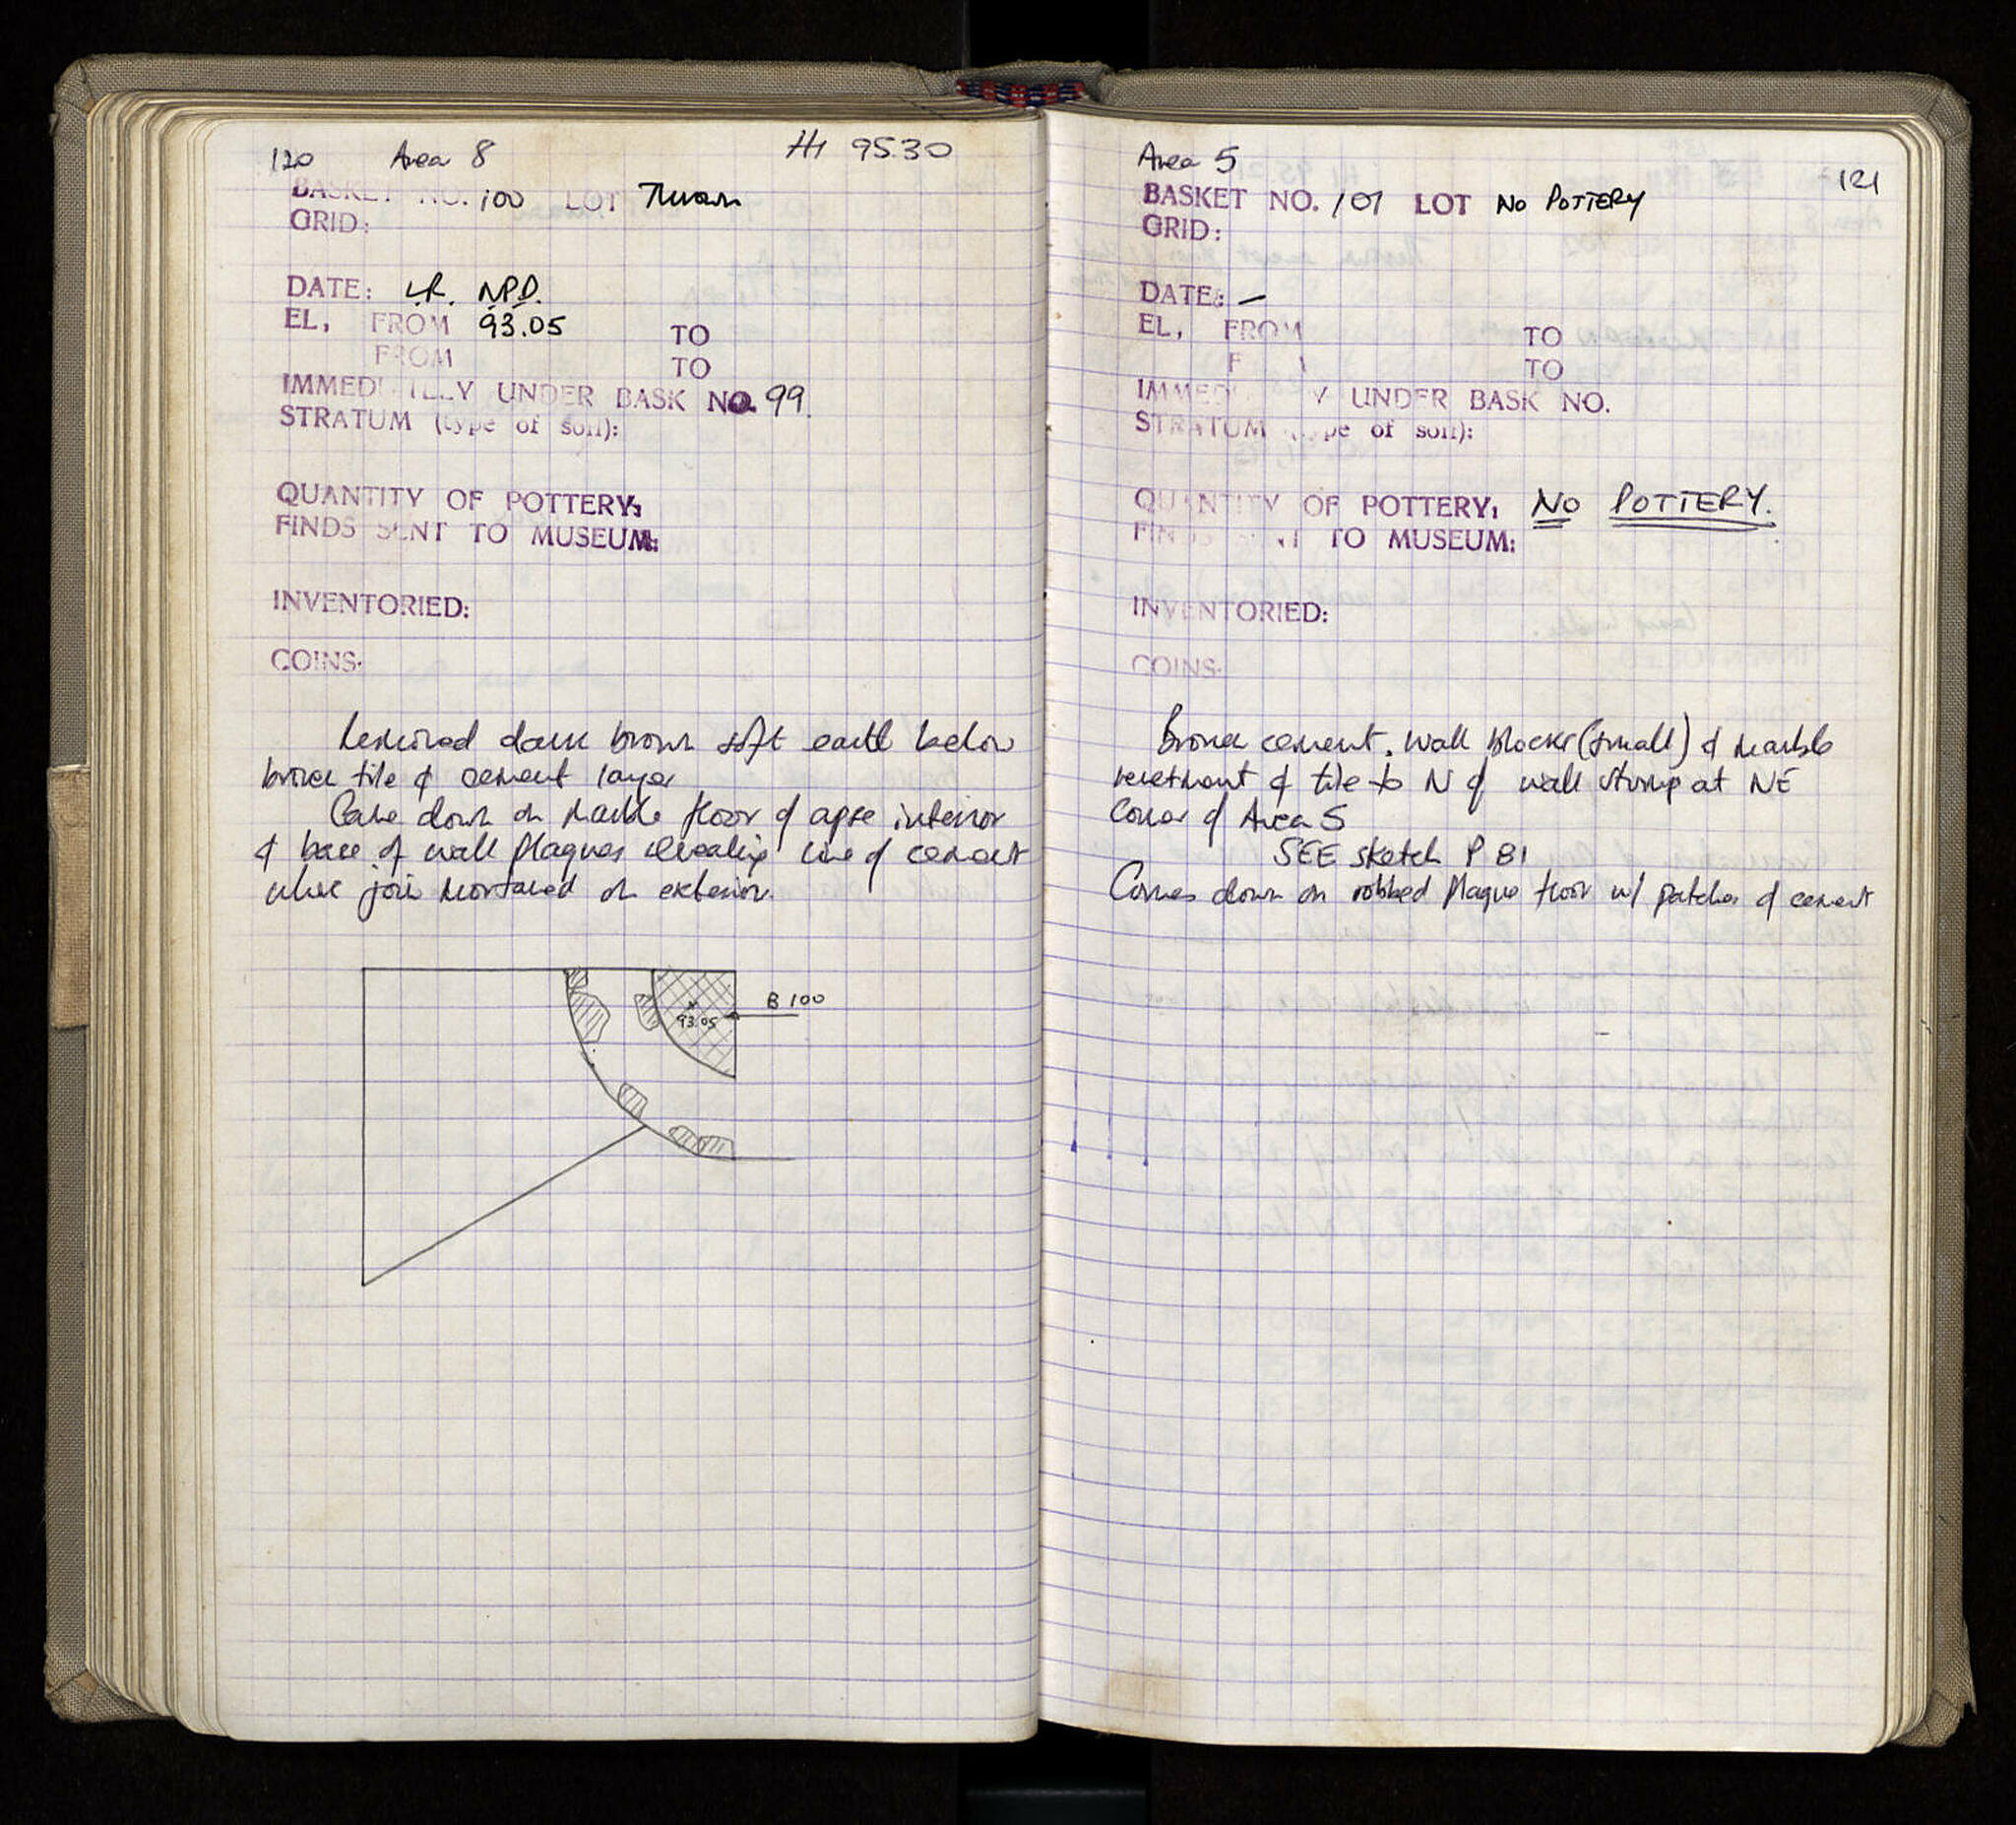 120 Area 8 HI 95.30
BASKET NO. 100 LOT Thrown
GRID:
DATE: LR. NPD.
EL, FROM 93.05 TO
FROM TO
IMMEDI TELY UNDER BASK NO. 99.
STRATUM (type of soil):
QUANTITY OF POTTERY:
FINDS SENT TO MUSEUM:
INVENTORIED:
COINS:
Removed dark brown soft earth below
broken tile & cement layer
Came down on marble floor of apse interior
& base of wall plaques revealing line of cement
where join mortared on exterior.
93.05
B 100
121
Area 5
BASKET NO. 101 LOT NO POTTERY
GRID:
DATE: —
EL, FROM TO
F TO
IMMED Y UNDER BASK NO.
STRATUM type of soil):
QUANTITY OF POTTERY: NO POTTERY.
FINDS SENT TO MUSEUM:
INVENTORIED:
COINS:
Broken cement. Wall blocks (small) & marble
revetment & tile to N of wall stump at NE
Corner of Area 5
SEE sketch P 81
Comes down on robbed plaque floor w/ patches of cement